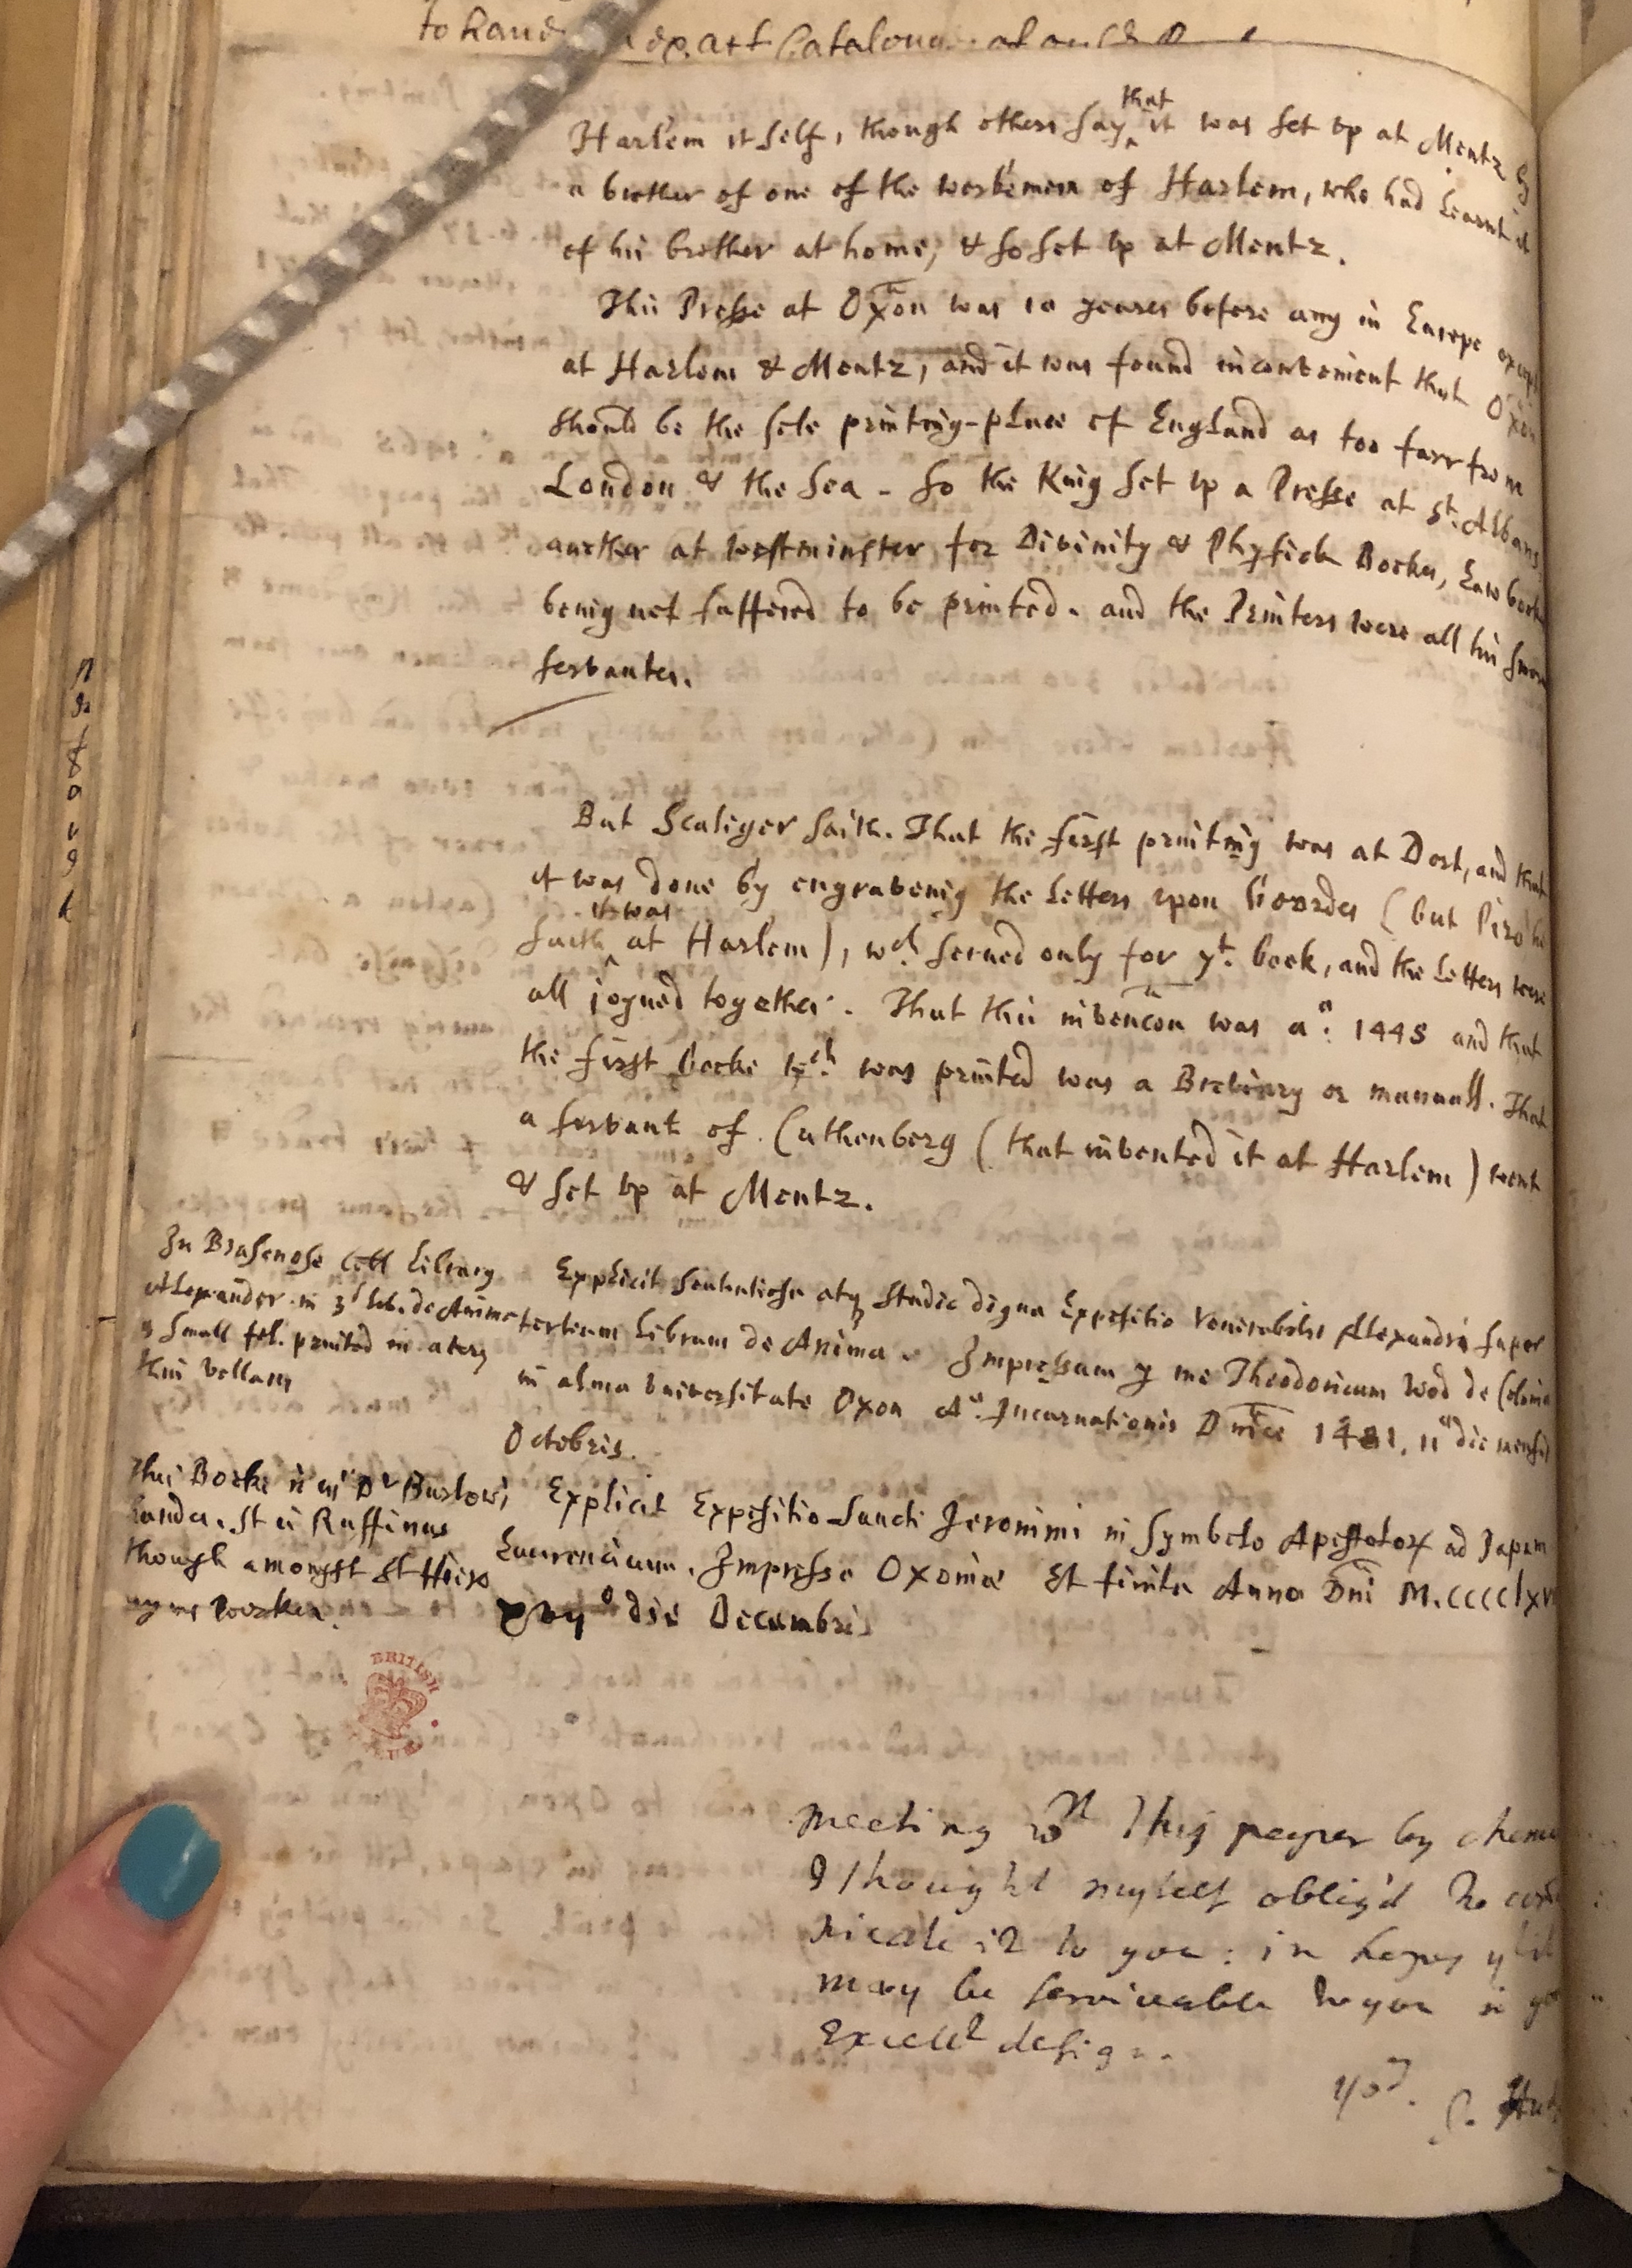 to haue exact Catalogue
Harlem it self, though others say that it was set vp at Mentz by
a brother of one of the workemen of Harlem, who had Learnt it
of his brother at home, & so set vp at Mentz.
This Presse at Oxōn was 10 yeares before any in Europe except
at Harlem & Mentz, and it was found inconvenient that Oxōn
should be the sole printing-place of England as too farr from
London & the Sea - So the King set vp a Presse at St. Albans,
another at Westminster for Divinity & Physick Bookes, Law books
being not suffered to be printed. and the Printers were all his sworn
servantes.
But Scaliger saith. That the first printing was at Dort, and that
it was done by engraveing the Letters vpon boordes (but
saith it was at Harlem), wch. serued only for yt. book, and the Letters were
all joyned together. That this invencōn was ao. 1445 and that
the first booke wch. was printed was a Breviary or manuall. That
a servant of Cuthenberg (that invented it at Harlem) went
& set vp at Mentz.
In Brasenose Coll Library
Alexander in 3d lib. de Anima
a small fol. printed in a very
thin vellam
Explicit sententiosa atq studio digna Expositio Venerabilis Alexandri super
tertium Librum de Anima. Impressum p me Theodoricum Wod de Colonia
in alma Vniversitate Oxon Ao. Incarnationis Dn̄ice 1481. 11o die mensis
Octobris.
This Booke is in Dr Barlows
handes. It is Ruffinus
though amongst St Hiero
nyms workes.
Explicit Expositio Sancti Jeronimi in Symbolo Apostolorum ad Papam
Laurencium. Impressa Oxonie Et finita Anno Dn̄i M.CCCClxv
xvijo die Decembris
BRITISH
MUSEUM
meeting wth this paper by
I thought myself oblig'd to
nicate it to you: in hopes yt it
may be serviceable to you in
Excellt design.